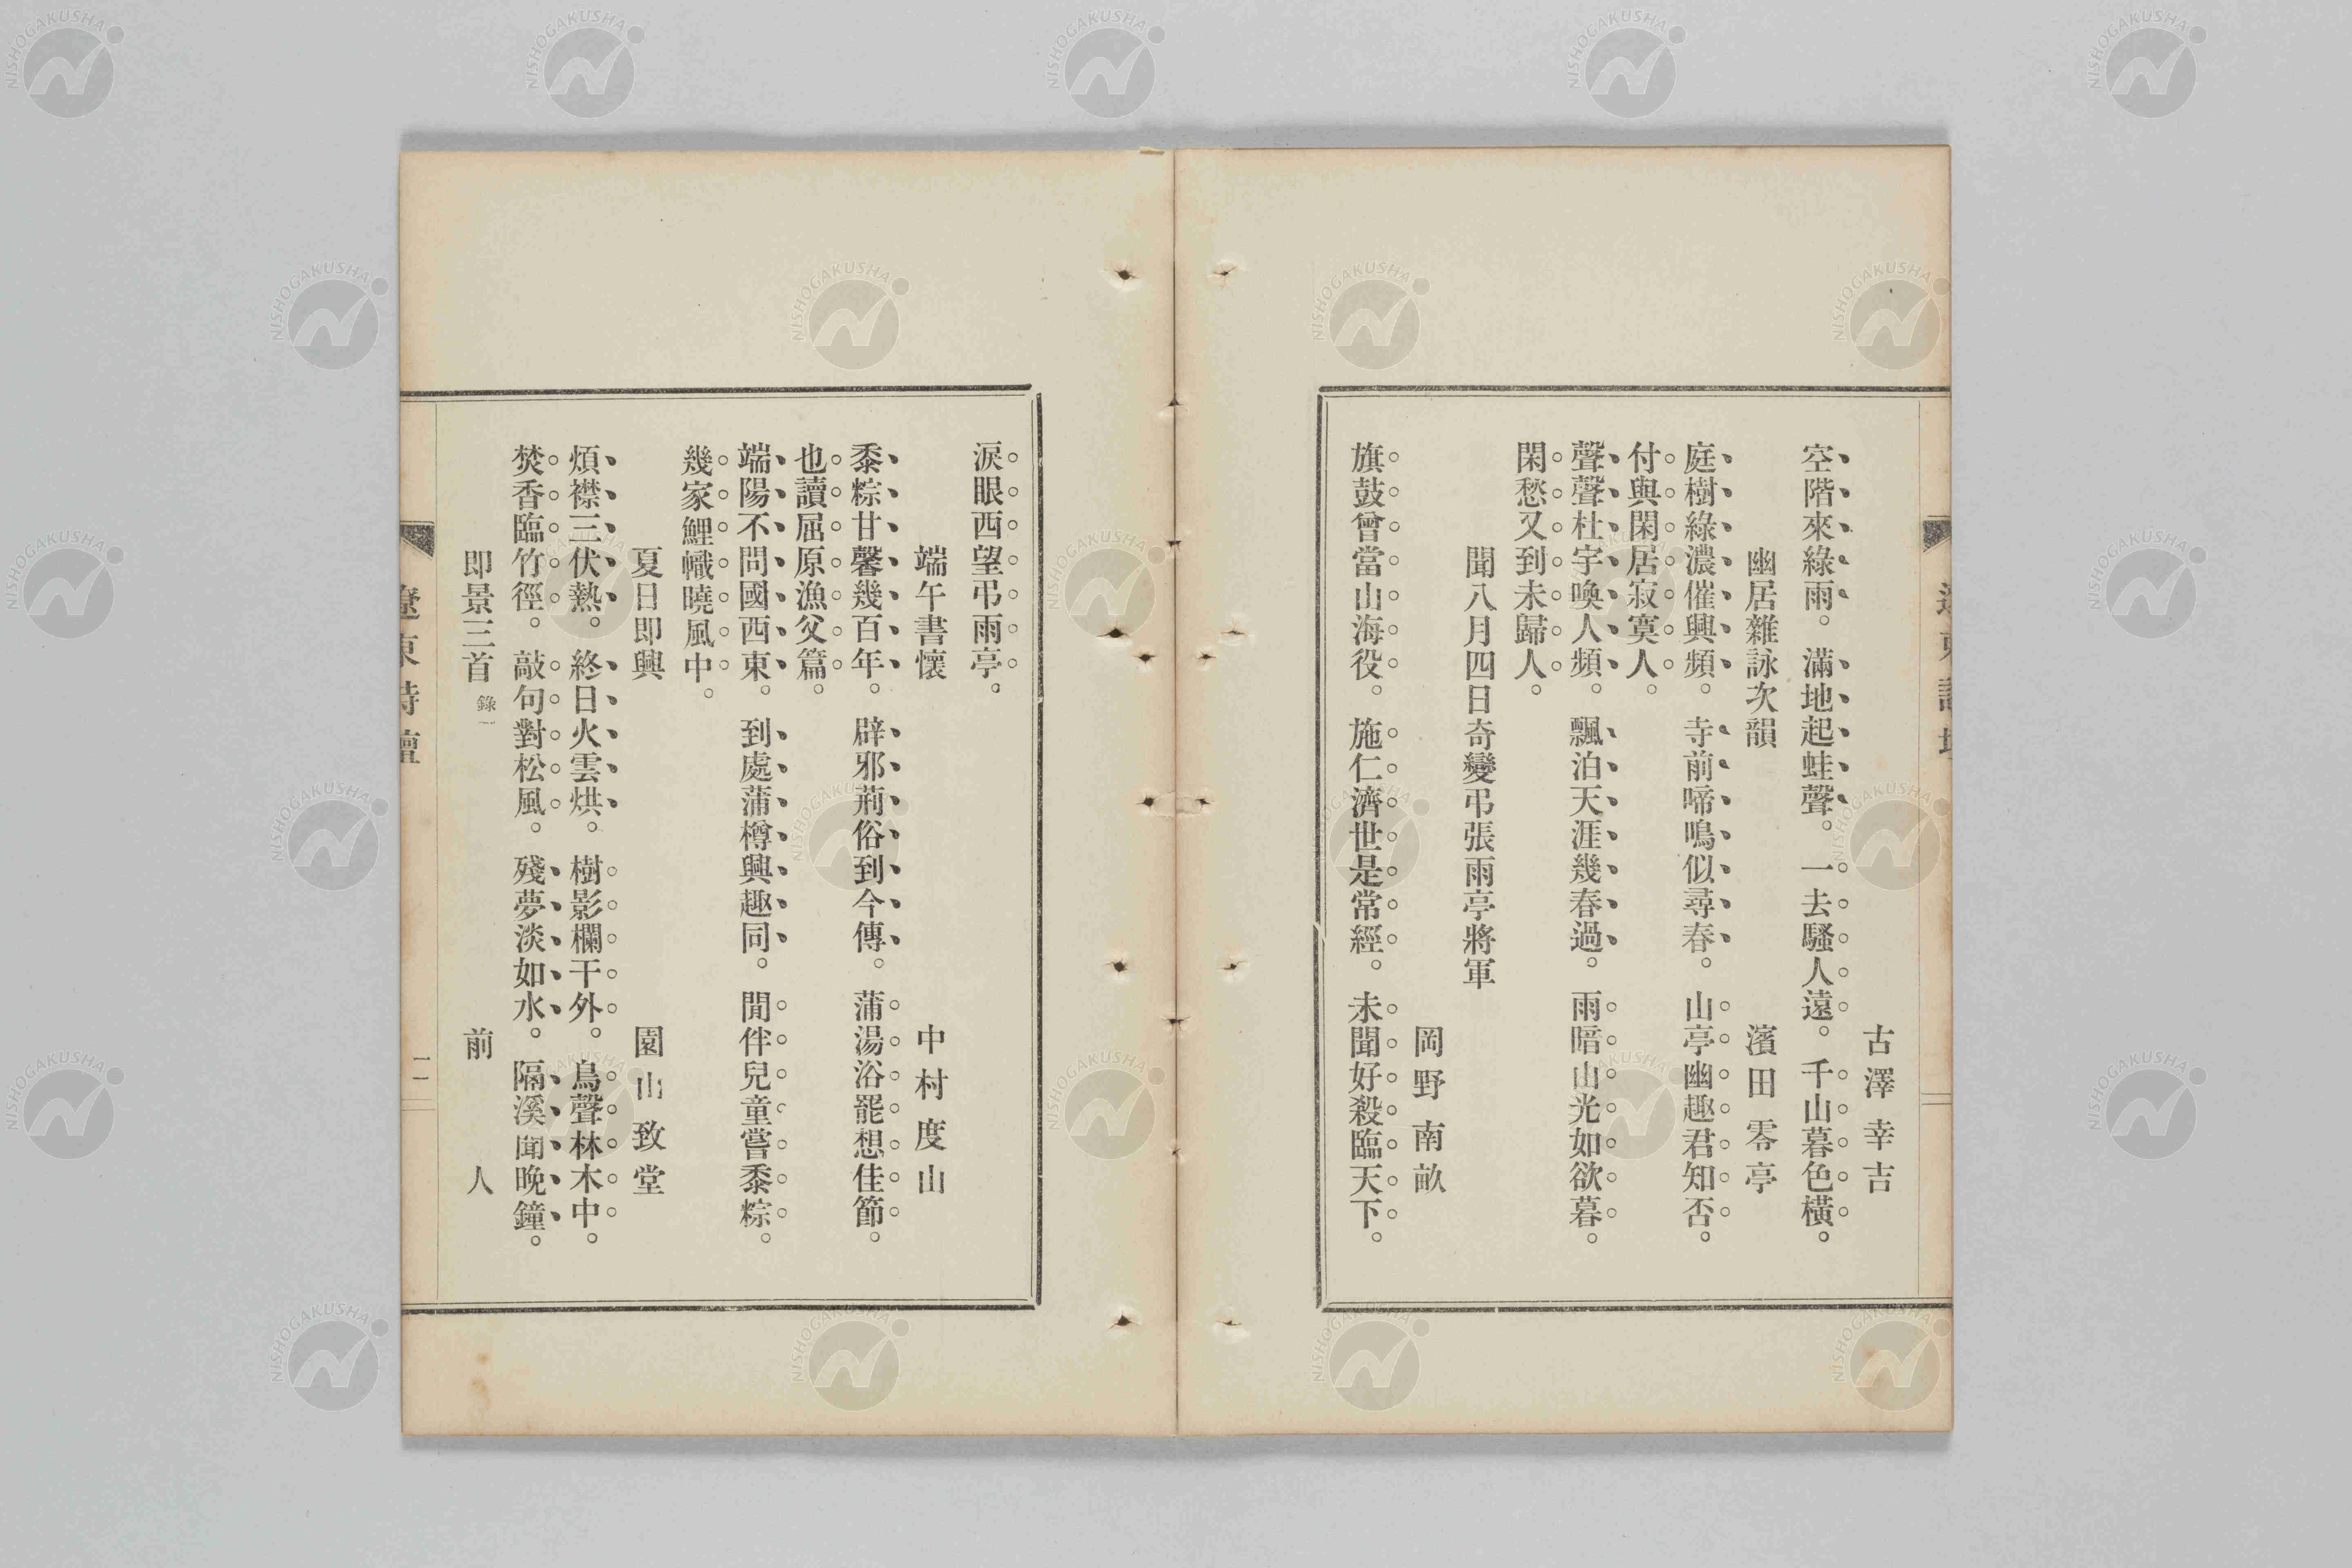 古澤幸吉
空階來綠雨。滿地起蛙聲。一去騷人遠。千山暮色橫。
幽居雜詠次韻　濱田零亭
庭樹綠濃催興頻。寺前啼鳴似尋春。山亭幽趣君知否。
付與閑居寂寞人。
聲聲杜宇喚人頻。飄泊天涯幾春過。雨暗山光如欲暮。
閑愁又到未歸人。
聞八月四日奇變弔張雨亭將軍
岡野南畝
旗鼓曾當山海役。施仁濟世是常經。未聞好殺臨天下。
淚眼西望弔雨亭。
端午書懷　中村度山
黍粽甘馨幾百年。辟邪荊俗到今傳。蒲湯浴罷想佳節。
也讀屈原漁父篇。
端陽不問國西東。到處蒲樽興趣同。閒伴兒童嘗黍粽。
幾家鯉幟曉風中。
夏日即興　園山致堂
煩襟三伏熱。終日火雲烘。樹影欄干外。鳥聲林木中。
焚香臨竹徑。敲句對松風。殘夢淡如水。隔溪聞晚鐘。
即景三首 錄一　前人
遼東詩壇
二
NISHOGAKUSHA